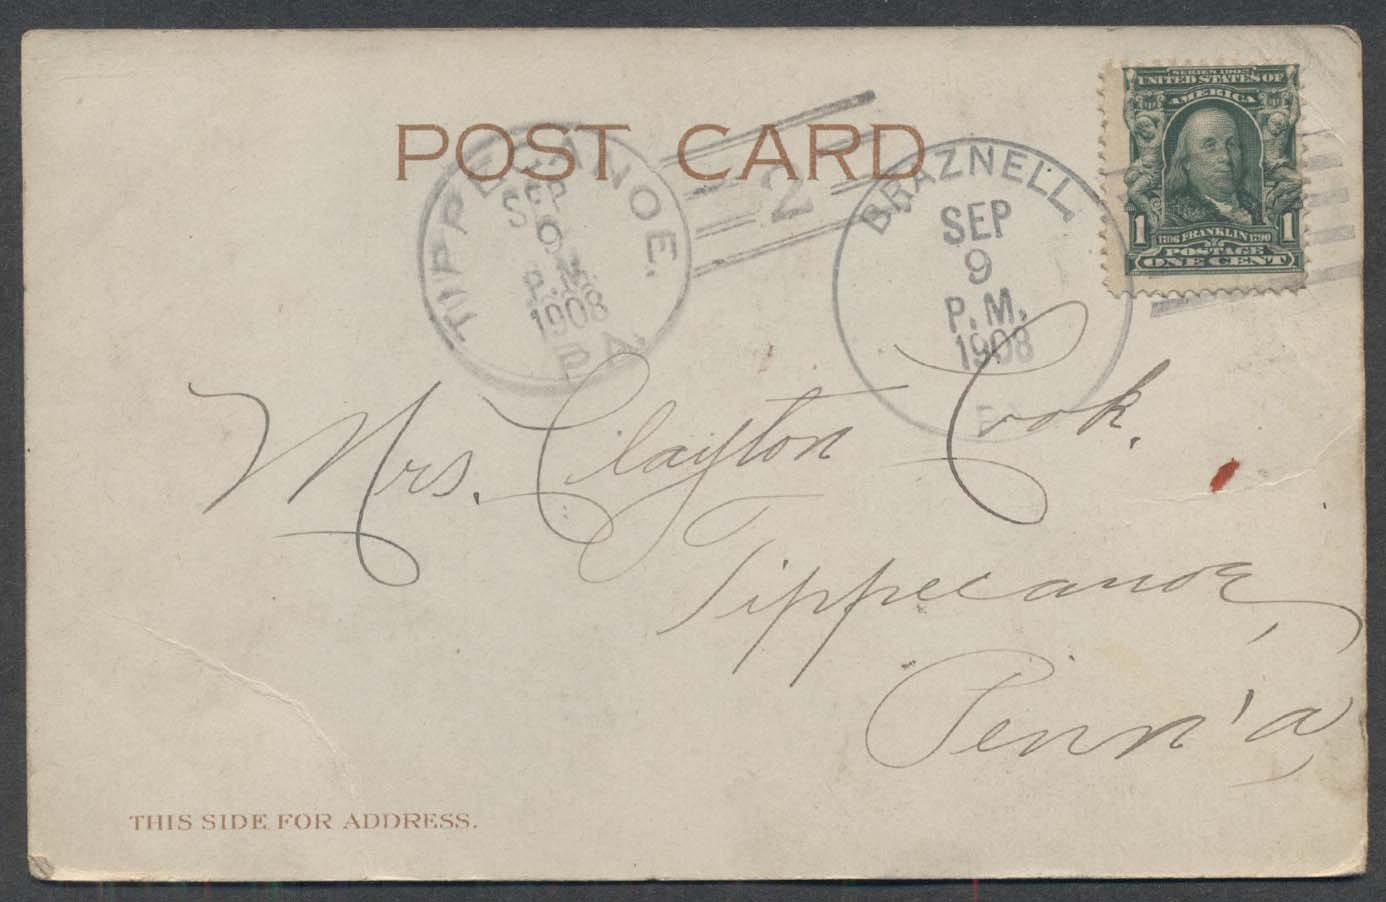 POST CARD
TIPPECANOE.
SEP
9
P.M.
1908
PA.
2
BRAZNELL,
SEP
9
P.M.
1908
SERIES 1902
UNITED STATES OF
AMERICA
1 1
1706 FRANKLIN 1790
POSTAGE
ONE CENT
Mrs. Clayton Cook,
Tippecanoe,
Penn'a
THIS SIDE FOR ADDRESS.